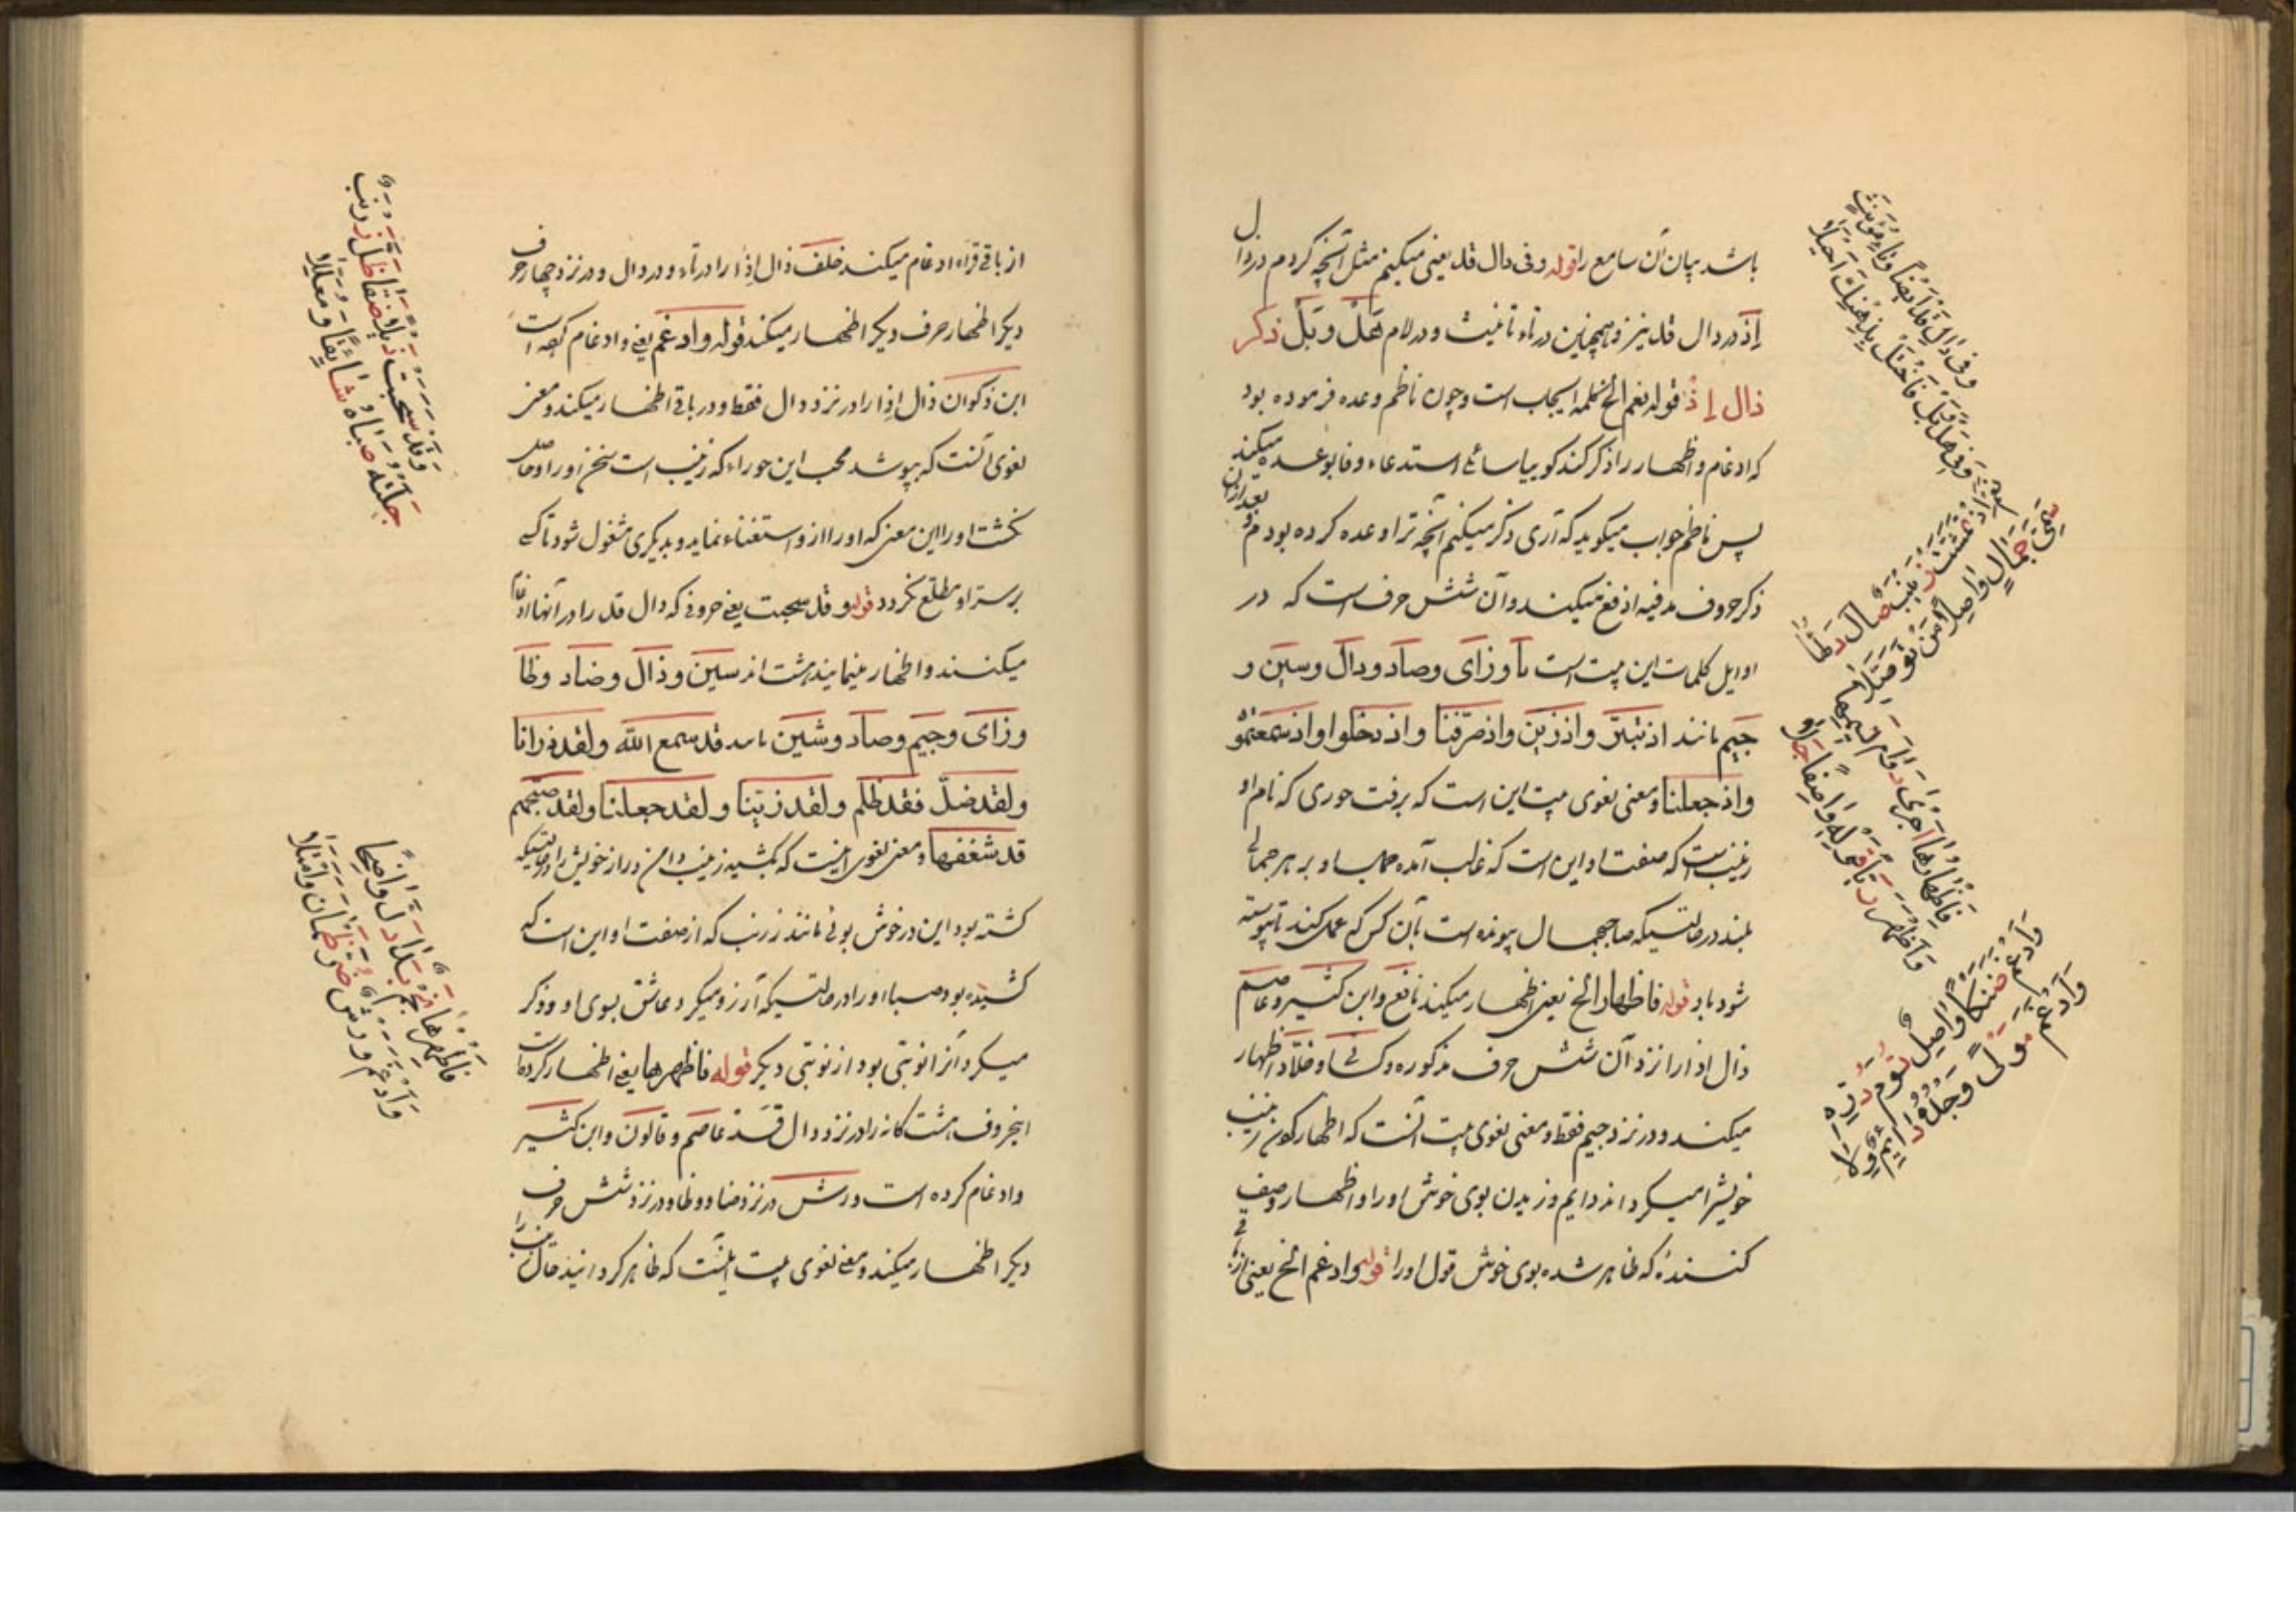 باشد بیان آن سامع را قوله وفی دال قد یعنی میکنیم مثل آنچه کردم در ذال
إذ در دال قد نیز و همچنین در تاء تانیث و در لام هل و بل ذکر
ذال إذ قوله نعم الخ کلمه ایجاب است و چون ناظم وعده فرموده بود
که ادغام و اظهار را ذکر کند کویا سائلی استدعاء وفا بوعده میکند
پس ناظم جواب میکوید که آری ذکر میکنم آنچه ترا وعده کرده بودم و بعد ازان
ذکر حروف مدغم فیه إذ میکند و آن شش حرف است که در
اوایل کلمات این بیت است تا و زای و صاد و دال و سین و
جیم مانند اذ تبرّا و اذ زین و اذ صرّفنا و اذ دخلوا و اذ سمعتموه
و اذ جعلنا و معنی لغوی بیت این است که برفت حوری که نام او
زینب است که صفت او این است که غالب آمده جمال او بر هر جمالی
بلند در حالتیکه صاحب جمال پیونده است بآن کس که عمل کند تا پیوسته
شود باو قوله فاظهارها الخ یعنی اظهار میکند نافع و ابن کثیر و عاصم
ذال اذ را نزد آن شش حرف مذکوره و کسائی و خلاد اظهار
میکند و در نزد جیم فقط و معنی لغوی بیت آنست که اظهار کردن زینب
خویش را میکرداند دایم وزیدن بوی خوش او را و اظهار وصف
کنندهٔ که ظاهر شده بوی خوش قول او را قوله و ادغم الخ یعنی
وفی دال قد ایضا وتاء مؤنث
وفی هل وبل فاحتل بذهنک احیلا
نعم اذ تمشت زینب صال دلها
سمی جمال واصلا من توصلا
فاظهارها اجری دوام نسیمها
واظهر ریا قوله واصف جلا
وادغم ضنکا واصل توم درّه
وادغم مولی وجده دائم ولا
از باقی قراء ادغام میکند خلف ذال إذ را در تاء و در دال و در نزد چهار حرف
دیکر اظهار حرف دیکر اظهار میکند قوله و ادغم یعنی و ادغام کرده است
ابن ذکوان ذال إذ را در نزد دال فقط و در باقی اظهار میکند و معنی
لغوی آنست که بپوشد محب این حوراء که زینب است سخن او را و حاصل
نکشت او را این معنی که او را از و استغناء نماید و بدیکری مشغول شود تا کسی
بر ستر او مطلع نکردد قوله و قد سحبت یعنی حروفی که دال قد را در آنها ادغام
میکنند و اظهار مینمایند هشت اند سین و ذال و ضاد و ظا
و زای و جیم و صاد و شین مانند قد سمع الله و لقد ذرأنا
و لقد ضلّ فقد ظلم و لقد زینا و لقد جعلنا و لقد صبّحهم
قد شغفها و معنی لغوی اینست که کشید زینب دامن دراز خویش را در حالتیکه
کشته بود این در خوش بوئی مانند زرنب که از صفت او این است که
کشیده بود صبا او را در حالتیکه آرزو میکرد عاشق بسوی او و ذکر
میکرد آنرا نوبتی بود از نوبتی دیکر قوله فاظهرها یعنی اظهار کرده است
این حروف هشت کانه را در نزد دال قد عاصم و قالون و ابن کثیر
و ادغام کرده است ورش در نزد ضاد و ظا و در نزد شش حرف
دیکر اظهار میکند و معنی لغوی بیت اینست که ظاهر کردانید حال زینب را
وقد سحبت ذیلا ضفا ظل زرنب
جلته صباه شائقا ومعللا
فاظهرها نجم بدا دل واضحا
وادغم ورش ضر ظمآن وامتلا